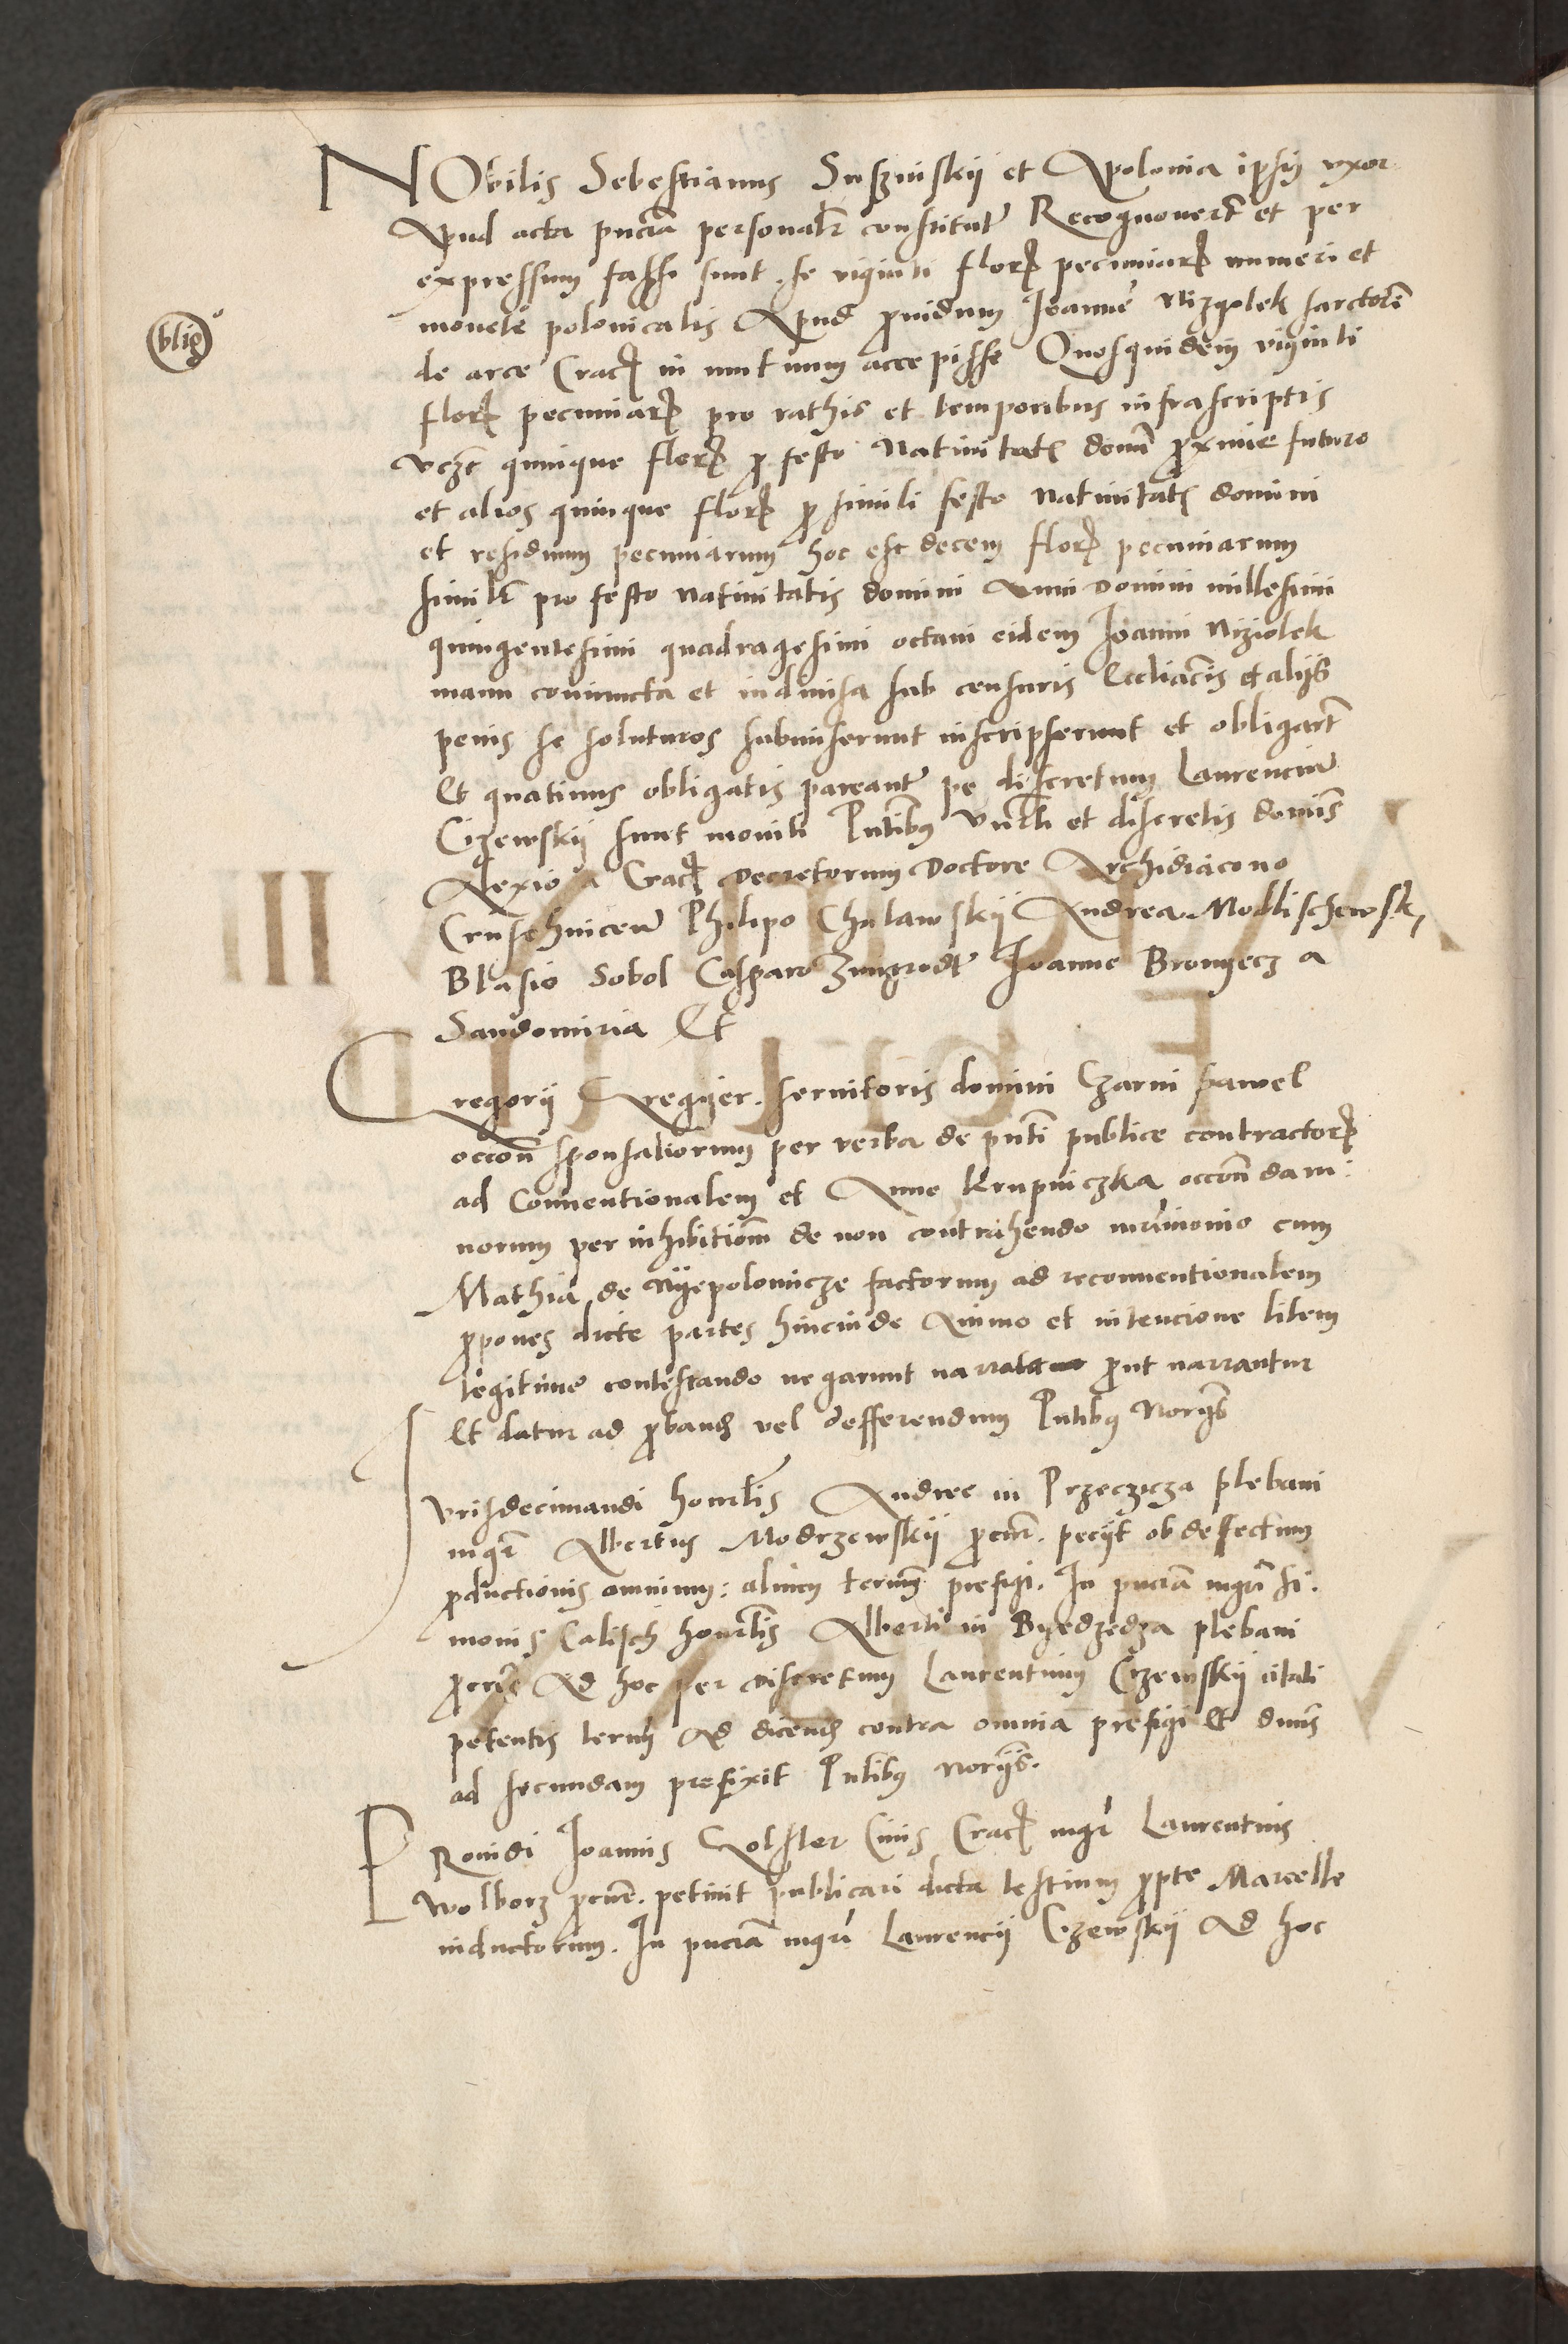 NObilis Sebestianus Suszinskij et Apolonia ipsius uxor
Apud acta pncia personalr constituti Recognoverūt et per
expressum fassi sunt se viginti flor pecuniar numeri et
monete polonicalis Apud providum Joanne Nizyolek sarctore
Oblig
de arce Crac in mutuum accepisse Quosquidem viginti
flor pecuniar pro rathis et temporibus infrascriptis
vczt quinque flor p festo Nativitatis domi proxime futuro
et alios quinque flor p simili festo nativitatis domini
et residuum pecuniarum hoc est decem flor pecuniarum
similr pro festo nativitatis domini Anni domini millesimi
quingentesimi quadragesimi octavi eidem Joanni Niziolek
manu coniuncta et indivisa sub censuris Eccliacis et alijs
penis se soluturos submiserunt inscripserunt et obligarūt
Et quatinus obligatis pareant pe discretum Laurenciū
Cizewskij sunt moniti Pntibus Vnrli et discretis domis
Alexio a Crac decretorum doctore Archidiacono
Crusehvicen Philipo Chulawskij Andrea Modlischewsk
Blasio Sobol Casparo Zmigrodt Joanne Bronyecz a
Sandomiria Et
Gregorij Gregyer servitoris domini Czarni pawel
occone sponsaliorum per verba de pnti publice contractor
ad Conventionalem et Anne Krupniczka occone dam:
norum per inhibitiom de non contrahendo mrimonio cum
Mathia de Nyepolomicze factorum ad reconventionalem
propones dicte partes hincinde Animo et intencione litem
legitime contestando negarunt narrata prout narrantur
Et datur ad proband vel defferendum Pntibus Norijs
Jurisdecimandi honrlis Andree in Przeczicza plebani
mgr Albertus Modrzewskij procur. peciit ob deffectum
productionis omnium: alium termin prefigi. In pncia mgri Si.
monis Calisch honrlis Alberti in Byedzedza plebani
procris Ad hoc per discretum Laurentium Cizewskij citati
petentis termi Ad dicend contra omnia prefigi Et dnus
ad secundam prefixit Pntibus norijs.
PRovidi Joannis Golsler Civis Crac mgr Laurentius
Wolborz procur. petivit publicari dicta testium propte Marcelle
inductorum. In pncia mgri Laurencij Cizewskij Ad hoc